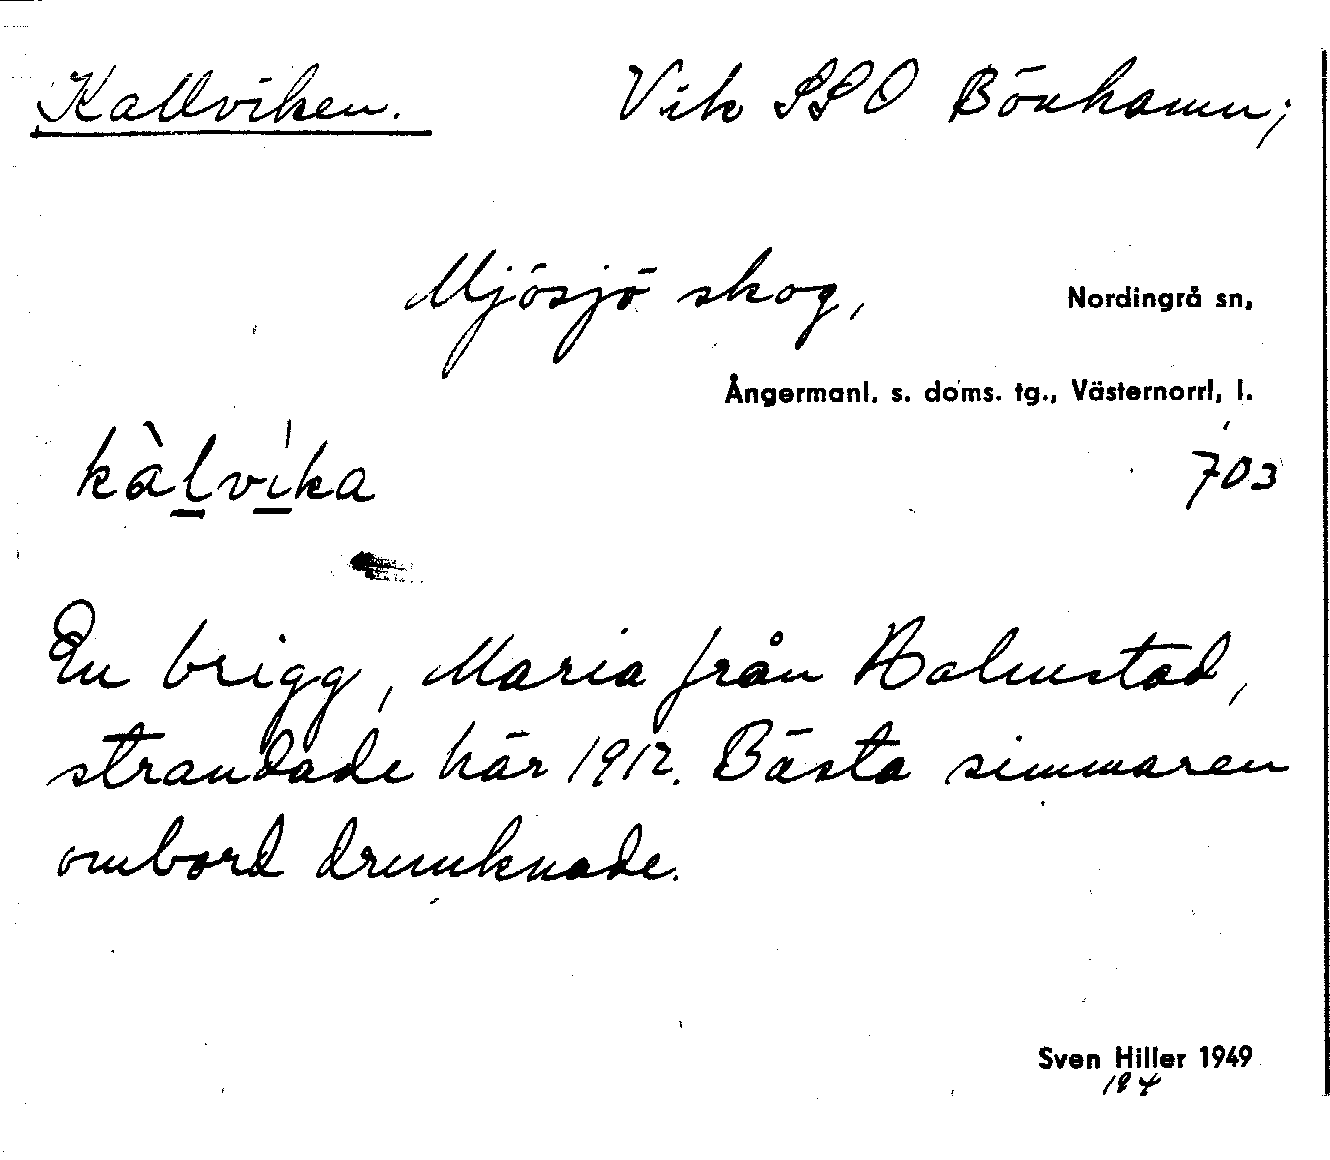 Kallviken. Vik SSO Bönhamn;
Mjösjö skog, Nordingrå sn,
Ångermanl. s. doms. tg., Västernorrl, l.
kàlvíka 703
En brigg, Maria från Halmstad,
strandade här 1912. Bästa simmaren
ombord drunknade.
Sven Hiller 1949